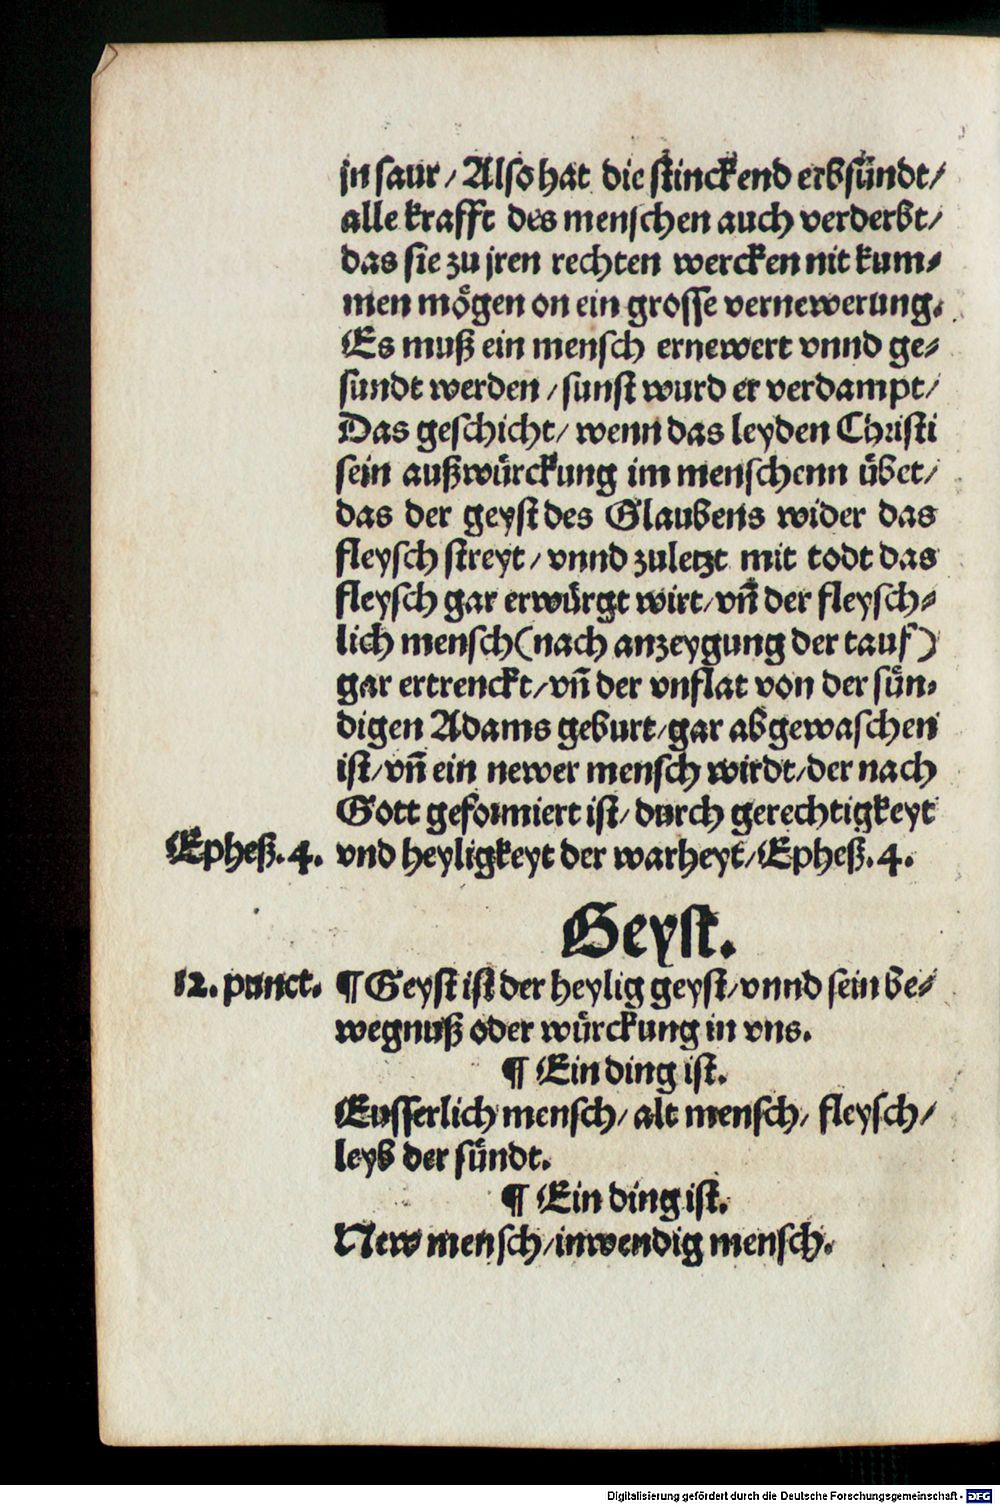 jn saur / Also hat die stinckend erbsündt /
alle krafft des menschen auch verderbt /
das sie zu jren rechten wercken nit kum⸗
men mögen on ein grosse vernewerung.
Es muß ein mensch ernewert vnnd ge⸗
sundt werden / sunst wurd er verdampt /
Das geschicht / wenn das leyden Christi
sein außwürckung im menschenn übet /
das der geyst des Glaubens wider das
fleysch streyt / vnnd zuletzt mit todt das
fleysch gar erwürgt wirt / vñ der fleysch⸗
lich mensch (nach anzeygung der tauf)
gar ertrenckt / vñ der vnflat von der sün⸗
digen Adams geburt / gar abgewaschen
ist / vñ ein newer mensch wirdt / der nach
Gott geformiert ist / durch gerechtigkeyt
Epheß. 4. vnd heyligkeyt der warheyt / Epheß. 4.
Geyst.
12. punct. ¶ Geyst ist der heylig geyst / vnnd sein be⸗
wegnuß oder würckung in vns.
¶ Ein ding ist.
Eusserlich mensch / alt mensch / fleysch /
leyb der sündt.
¶ Ein ding ist.
New mensch / inwendig mensch.
Digitalisierung gefördert durch die Deutsche Forschungsgemeinschaft - DFG